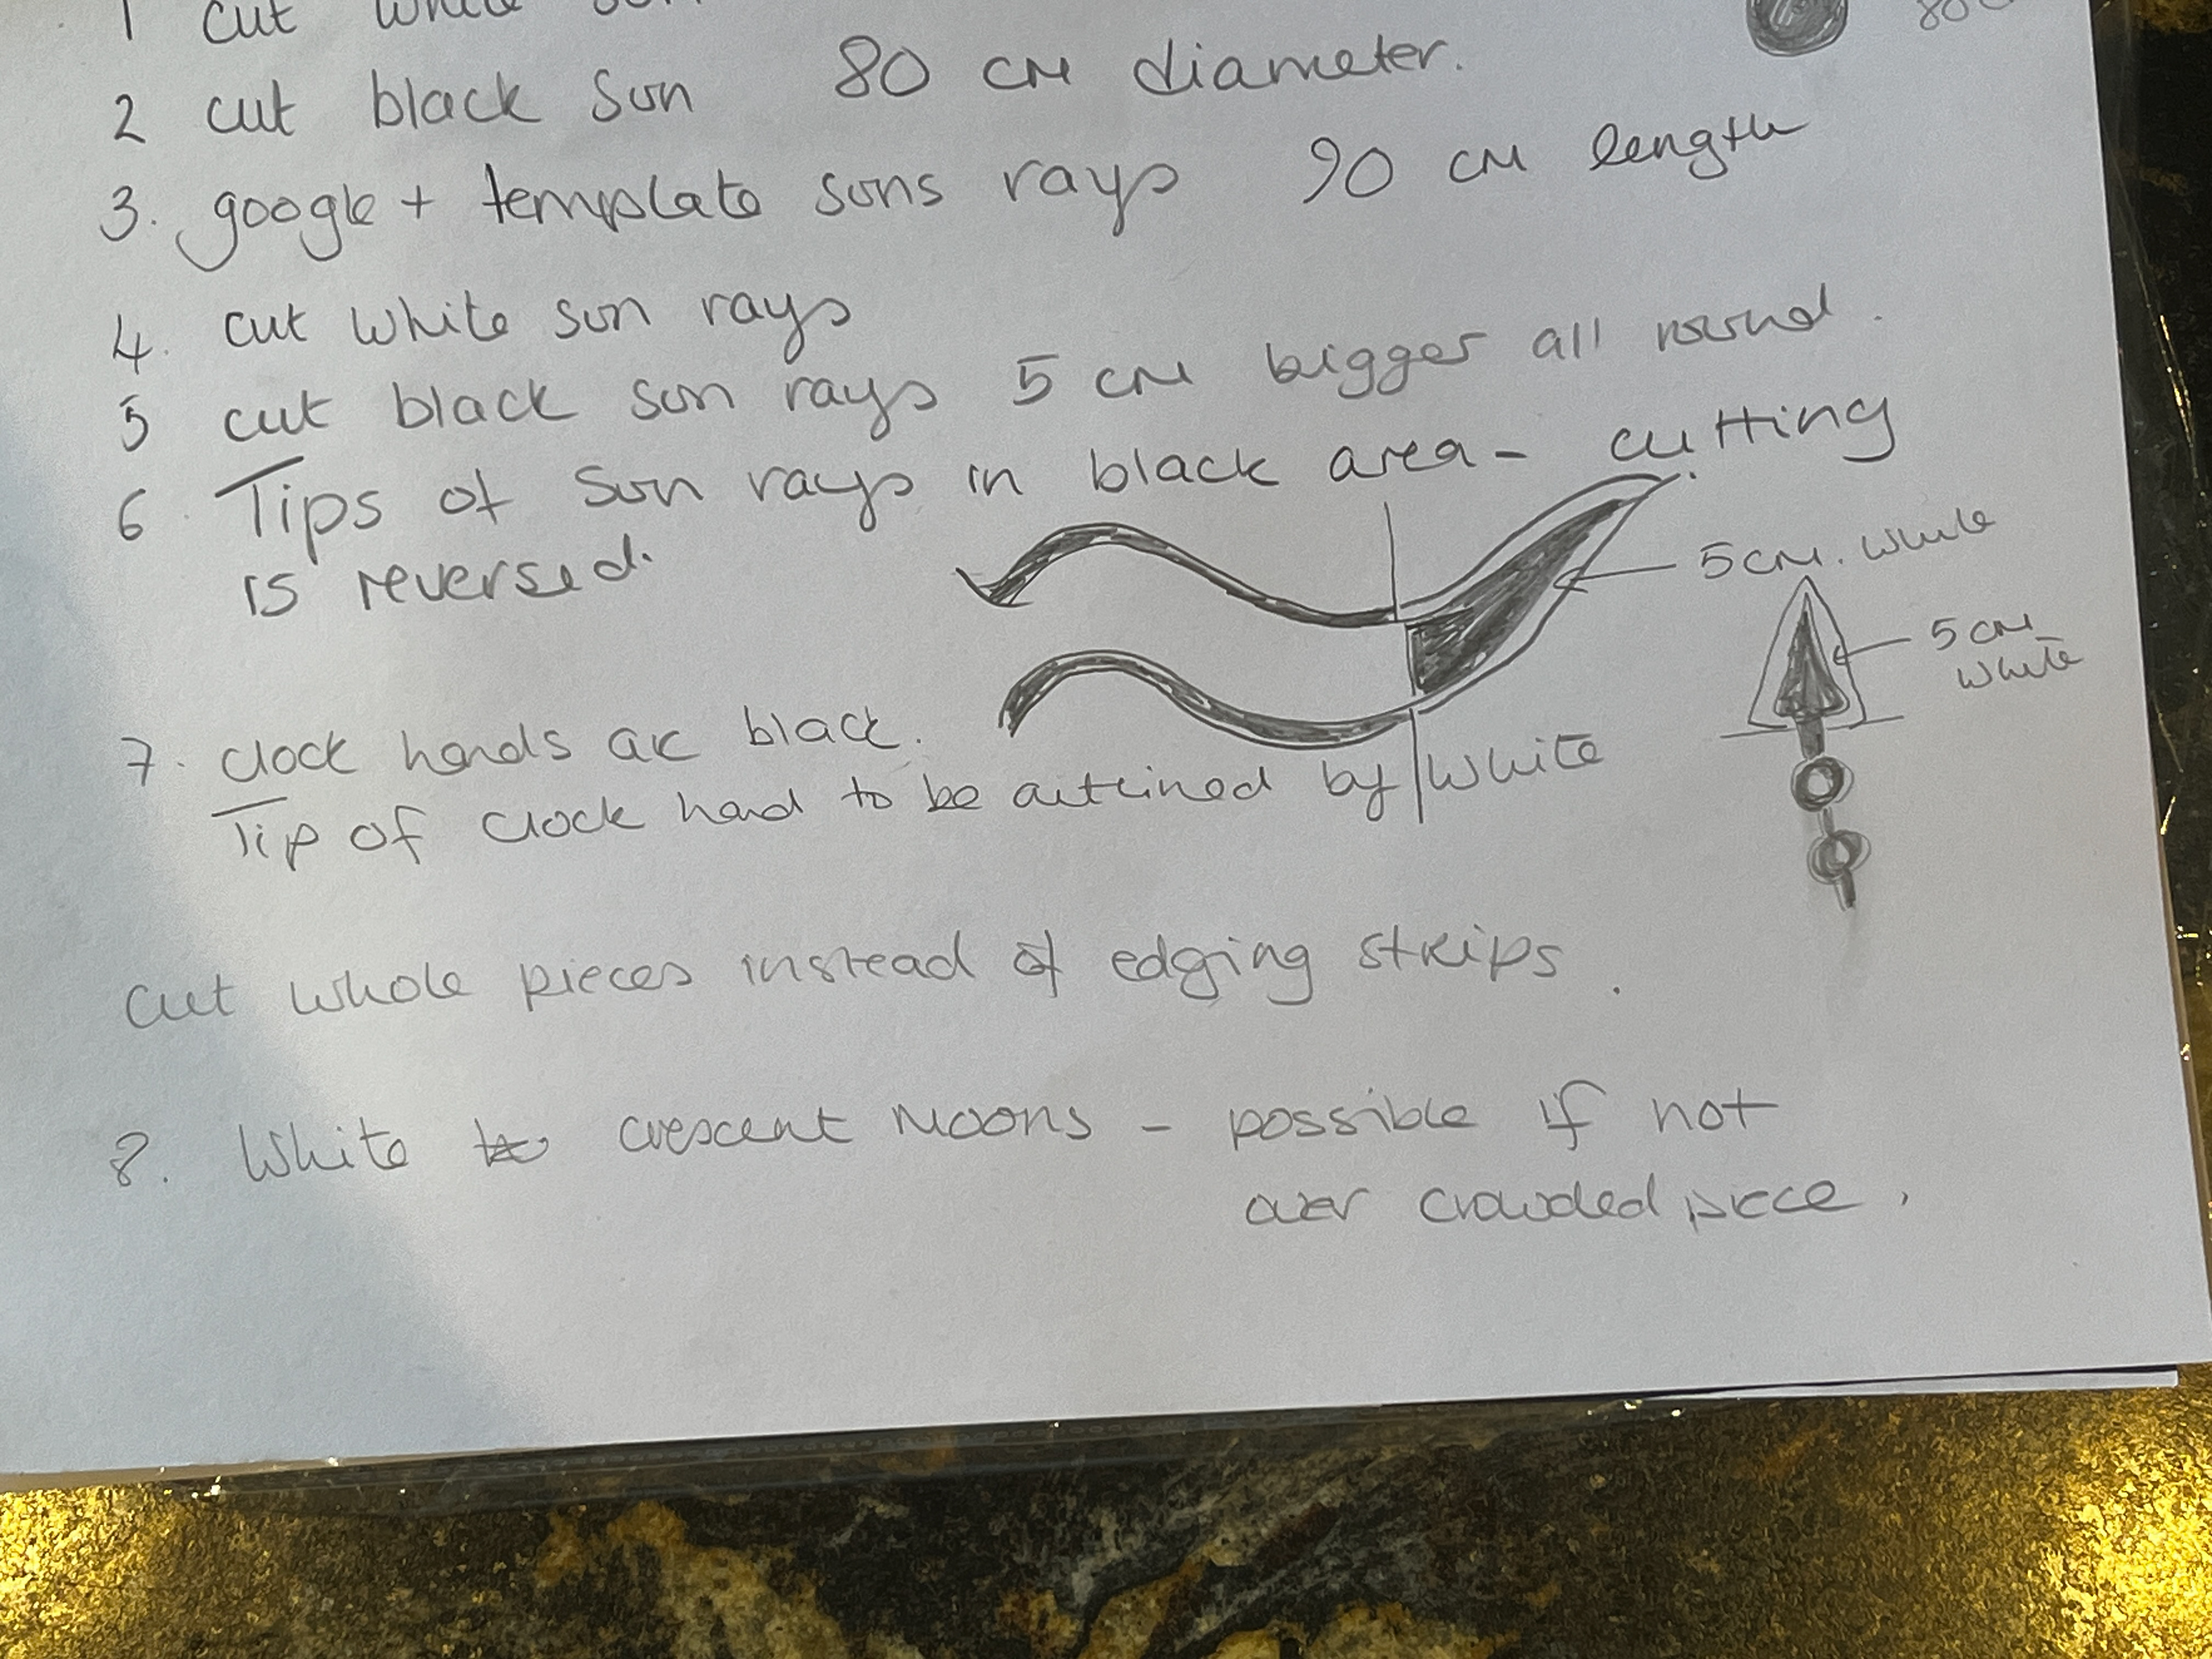 1 cut white
2 cut black sun 80 cm diameter.
3. google + template suns rays 90 cm length
4. cut white sun rays
5 cut black sun rays 5 cm bigger all round.
6. Tips of sun rays in black area - cutting
is reversed.
5 cm. white
5 cm
white
7. Clock hands are black.
Tip of clock hand to be outlined by white
cut whole pieces instead of edging strips.
8. White crescent moons - possible if not
over crowded piece.